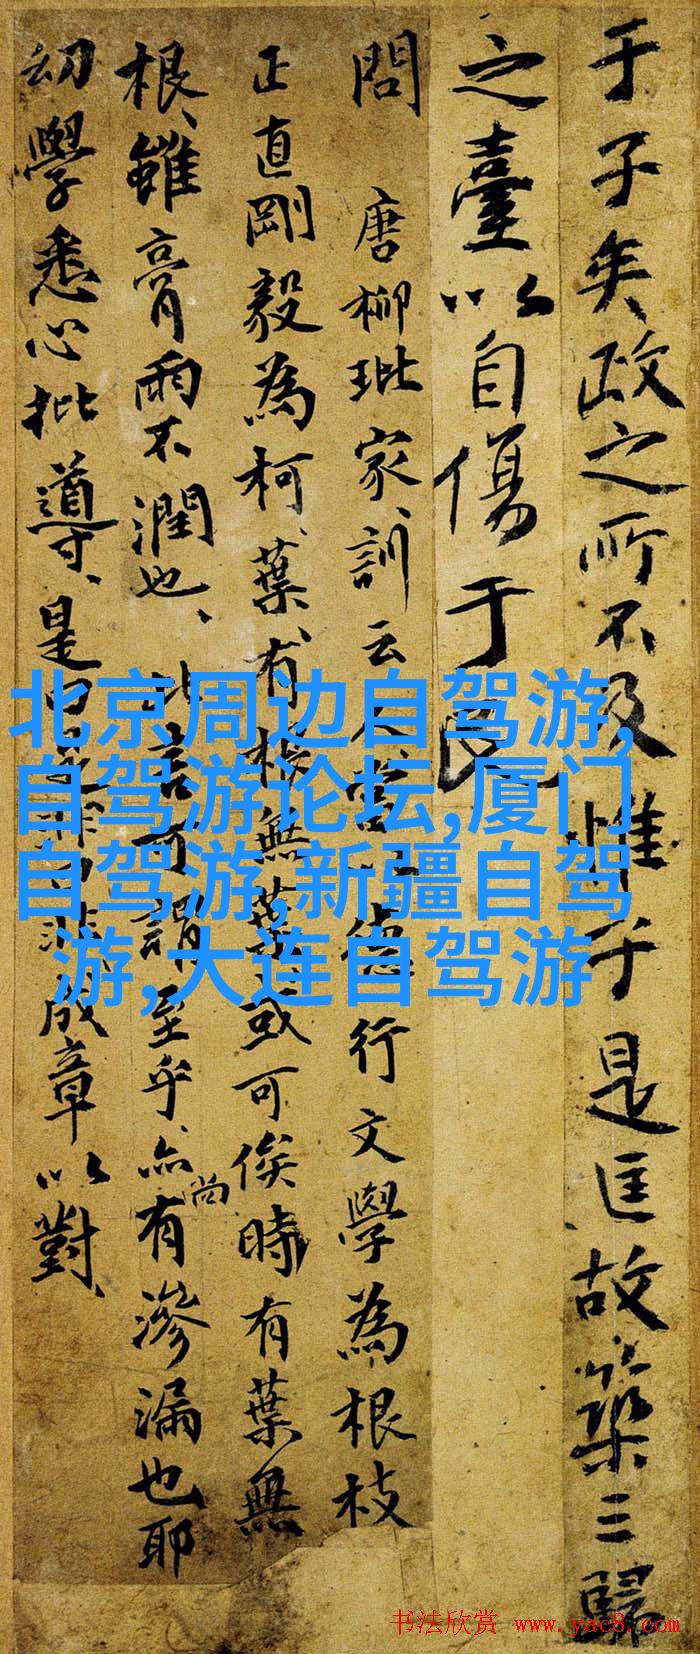 于子矣政之所不及惟于是匡故築三歸
之臺以自傷于民
問 唐柳玭家訓云人當以德行文學為根枝
正直剛毅為柯葉有根無葉或可俟時有葉無
根雖膏雨不潤也此言可謂至乎亦尚有滲漏也耶
幼學悉心批導是曰是非曰非成章以對
北京周边自驾游,
自驾游论坛,厦门
自驾游,新疆自驾
游,大连自驾游
书法欣赏 www.yac8.com